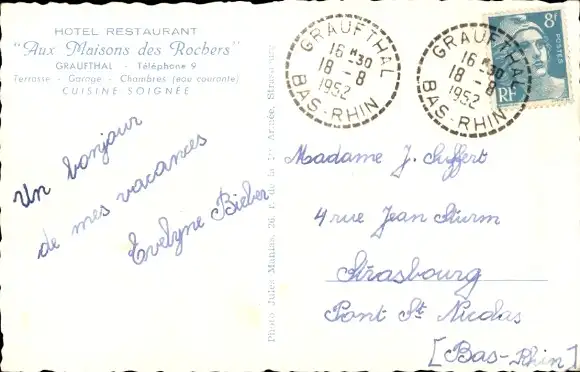 HOTEL RESTAURANT
"Aux Maisons des Rochers"
GRAUFTHAL - Téléphone 9
Terrasse - Garage - Chambres (eau courante)
CUISINE SOIGNÉE
Un bonjour
de mes vacances
Evelyne Bieber
Photo Jules Manias, 26, de la 1re Armée, Strasbourg
GRAUFTHAL
16 H 30
18 - 8
1952
BAS-RHIN
GRAUFTHAL
16 H 30
18 - 8
1952
BAS-RHIN
8F
POSTES
RF
Madame J.
4 rue Jean Sturm
Strasbourg
Pont St Nicolas
[Bas-Rhin]